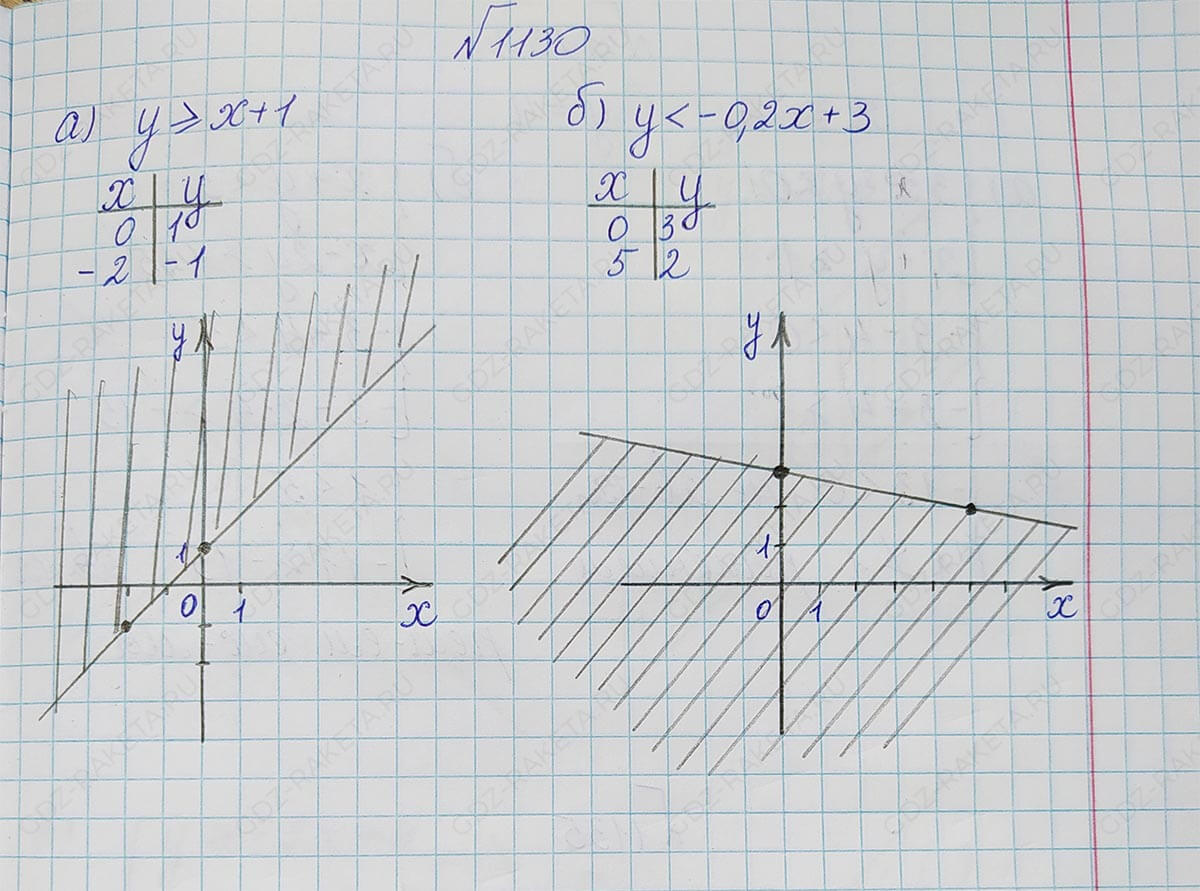 №1130
а) y ⩾ x+1
x | y
0 | 1
-2 | -1
y
1
0 1 x
б) y < -0,2x+3
x | y
0 | 3
5 | 2
y
1
0 1 x
GDZ-RAKETA.RU